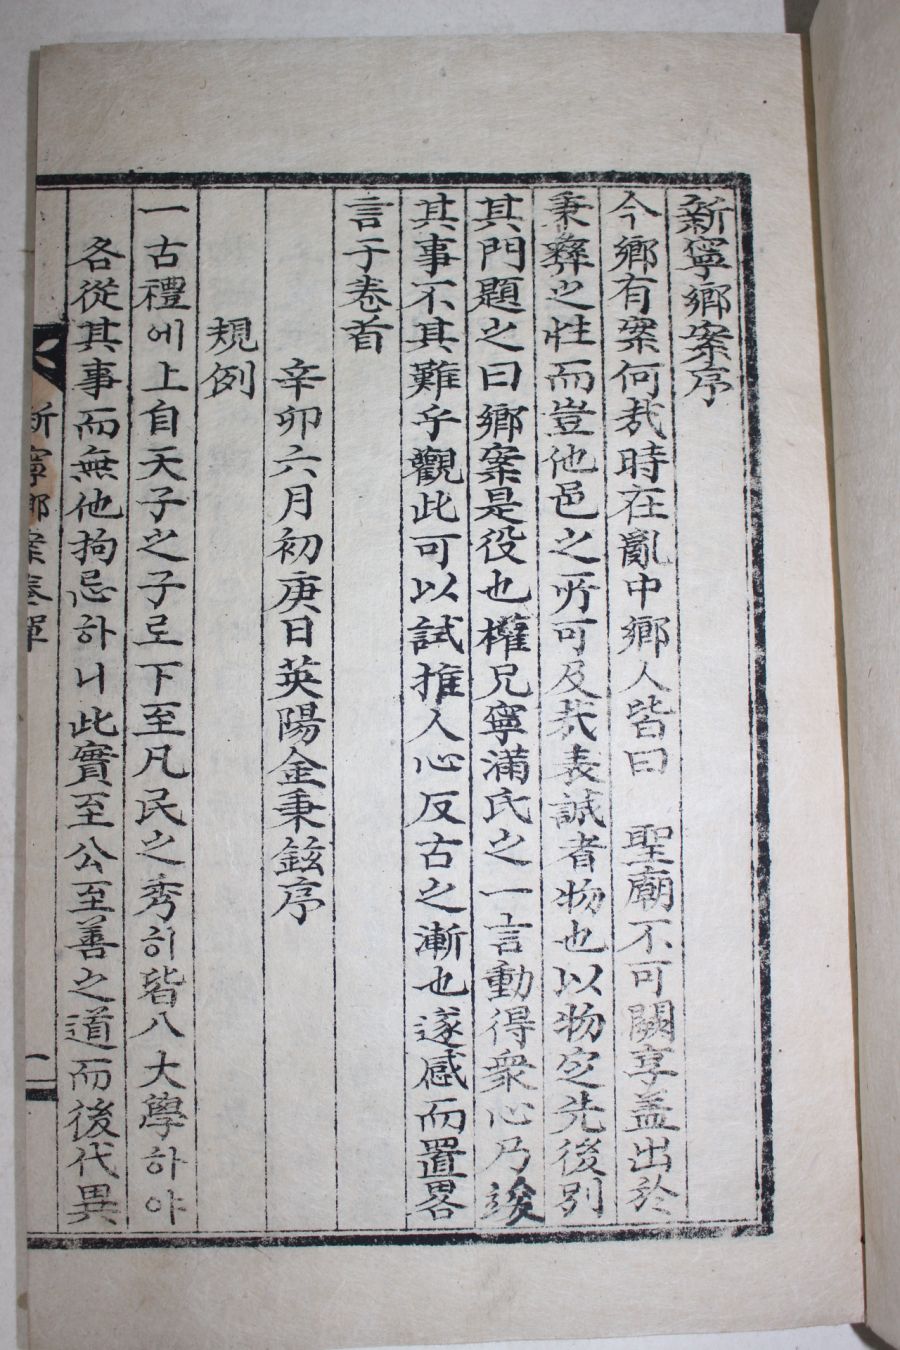 新寧鄉案序
今鄉有案何哉時在亂中鄉人皆曰 聖廟不可闕享盖出於
秉彝之性而豈他邑之所可及哉表誠者物也以物定先後別
其門題之曰鄉案是役也權兄寧滿氏之一言動得衆心乃竣
其事不其難乎觀此可以試推人心反古之漸也遂感而置畧
言于卷首
辛卯六月初庚日英陽金秉鉉序
規例
一古禮에上自天子之子로下至凡民之秀히皆入大學하야
各從其事而無他拘忌하니此實至公至善之道而後代異
新寧鄉案卷單
一